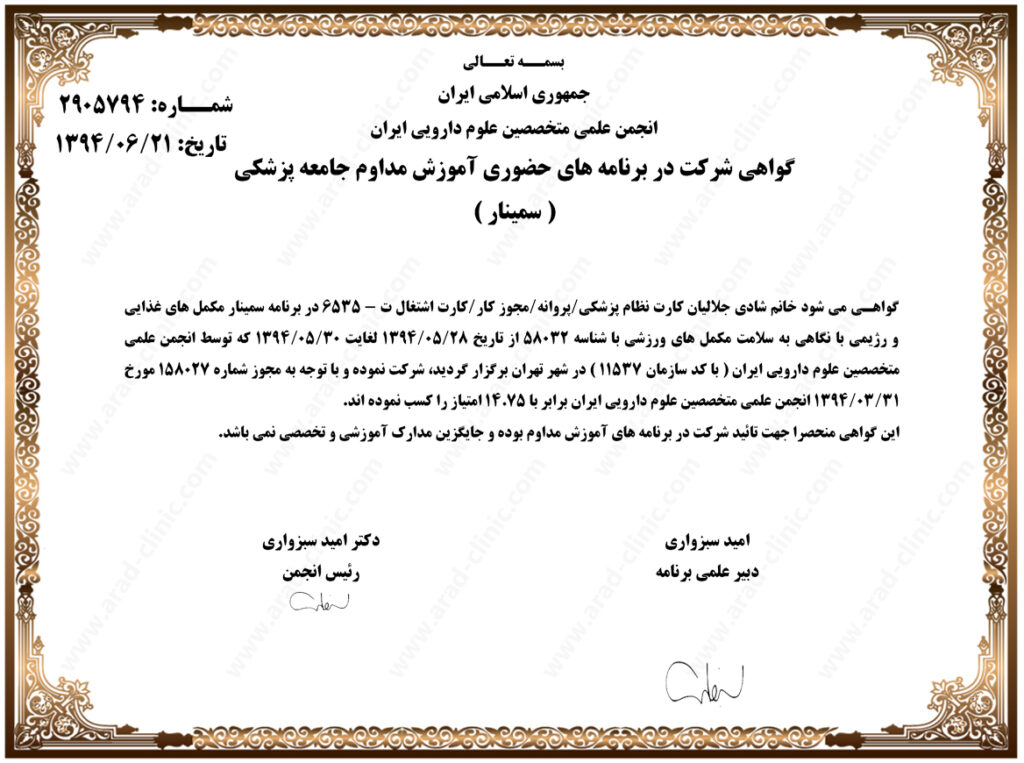 بسمـــه تعـــالی
جمهوری اسلامی ایران
انجمن علمی متخصصین علوم دارویی ایران
شمـــاره: ۲۹۰۵۷۹۴
تاریخ: ۱۳۹۴/۰۶/۲۱
گواهی شرکت در برنامه های حضوری آموزش مداوم جامعه پزشکی
( سمینار )
گواهـی می شود خانم شادی جلالیان کارت نظام پزشکی/پروانه/مجوز کار/کارت اشتغال ت – ۶۵۳۵ در برنامه سمینار مکمل های غذایی
و رژیمی با نگاهی به سلامت مکمل های ورزشی با شناسه ۵۸۰۳۲ از تاریخ ۱۳۹۴/۰۵/۲۸ لغایت ۱۳۹۴/۰۵/۳۰ که توسط انجمن علمی
متخصصین علوم دارویی ایران ( با کد سازمان ۱۱۵۳۷ ) در شهر تهران برگزار گردید، شرکت نموده و با توجه به مجوز شماره ۱۵۸۰۲۷ مورخ
۱۳۹۴/۰۳/۳۱ انجمن علمی متخصصین علوم دارویی ایران برابر با ۱۴.۷۵ امتیاز را کسب نموده اند.
این گواهی منحصرا جهت تائید شرکت در برنامه های آموزش مداوم بوده و جایگزین مدارک آموزشی و تخصصی نمی باشد.
امید سبزواری
دبیر علمی برنامه
دکتر امید سبزواری
رئیس انجمن
www.arad-clinic.com